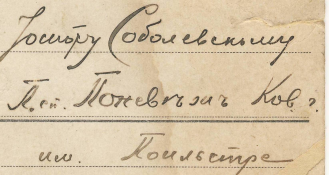 Іосифу Соболевскому
П. ст. Поневѣжъ Ков. г.
им. Поильстре